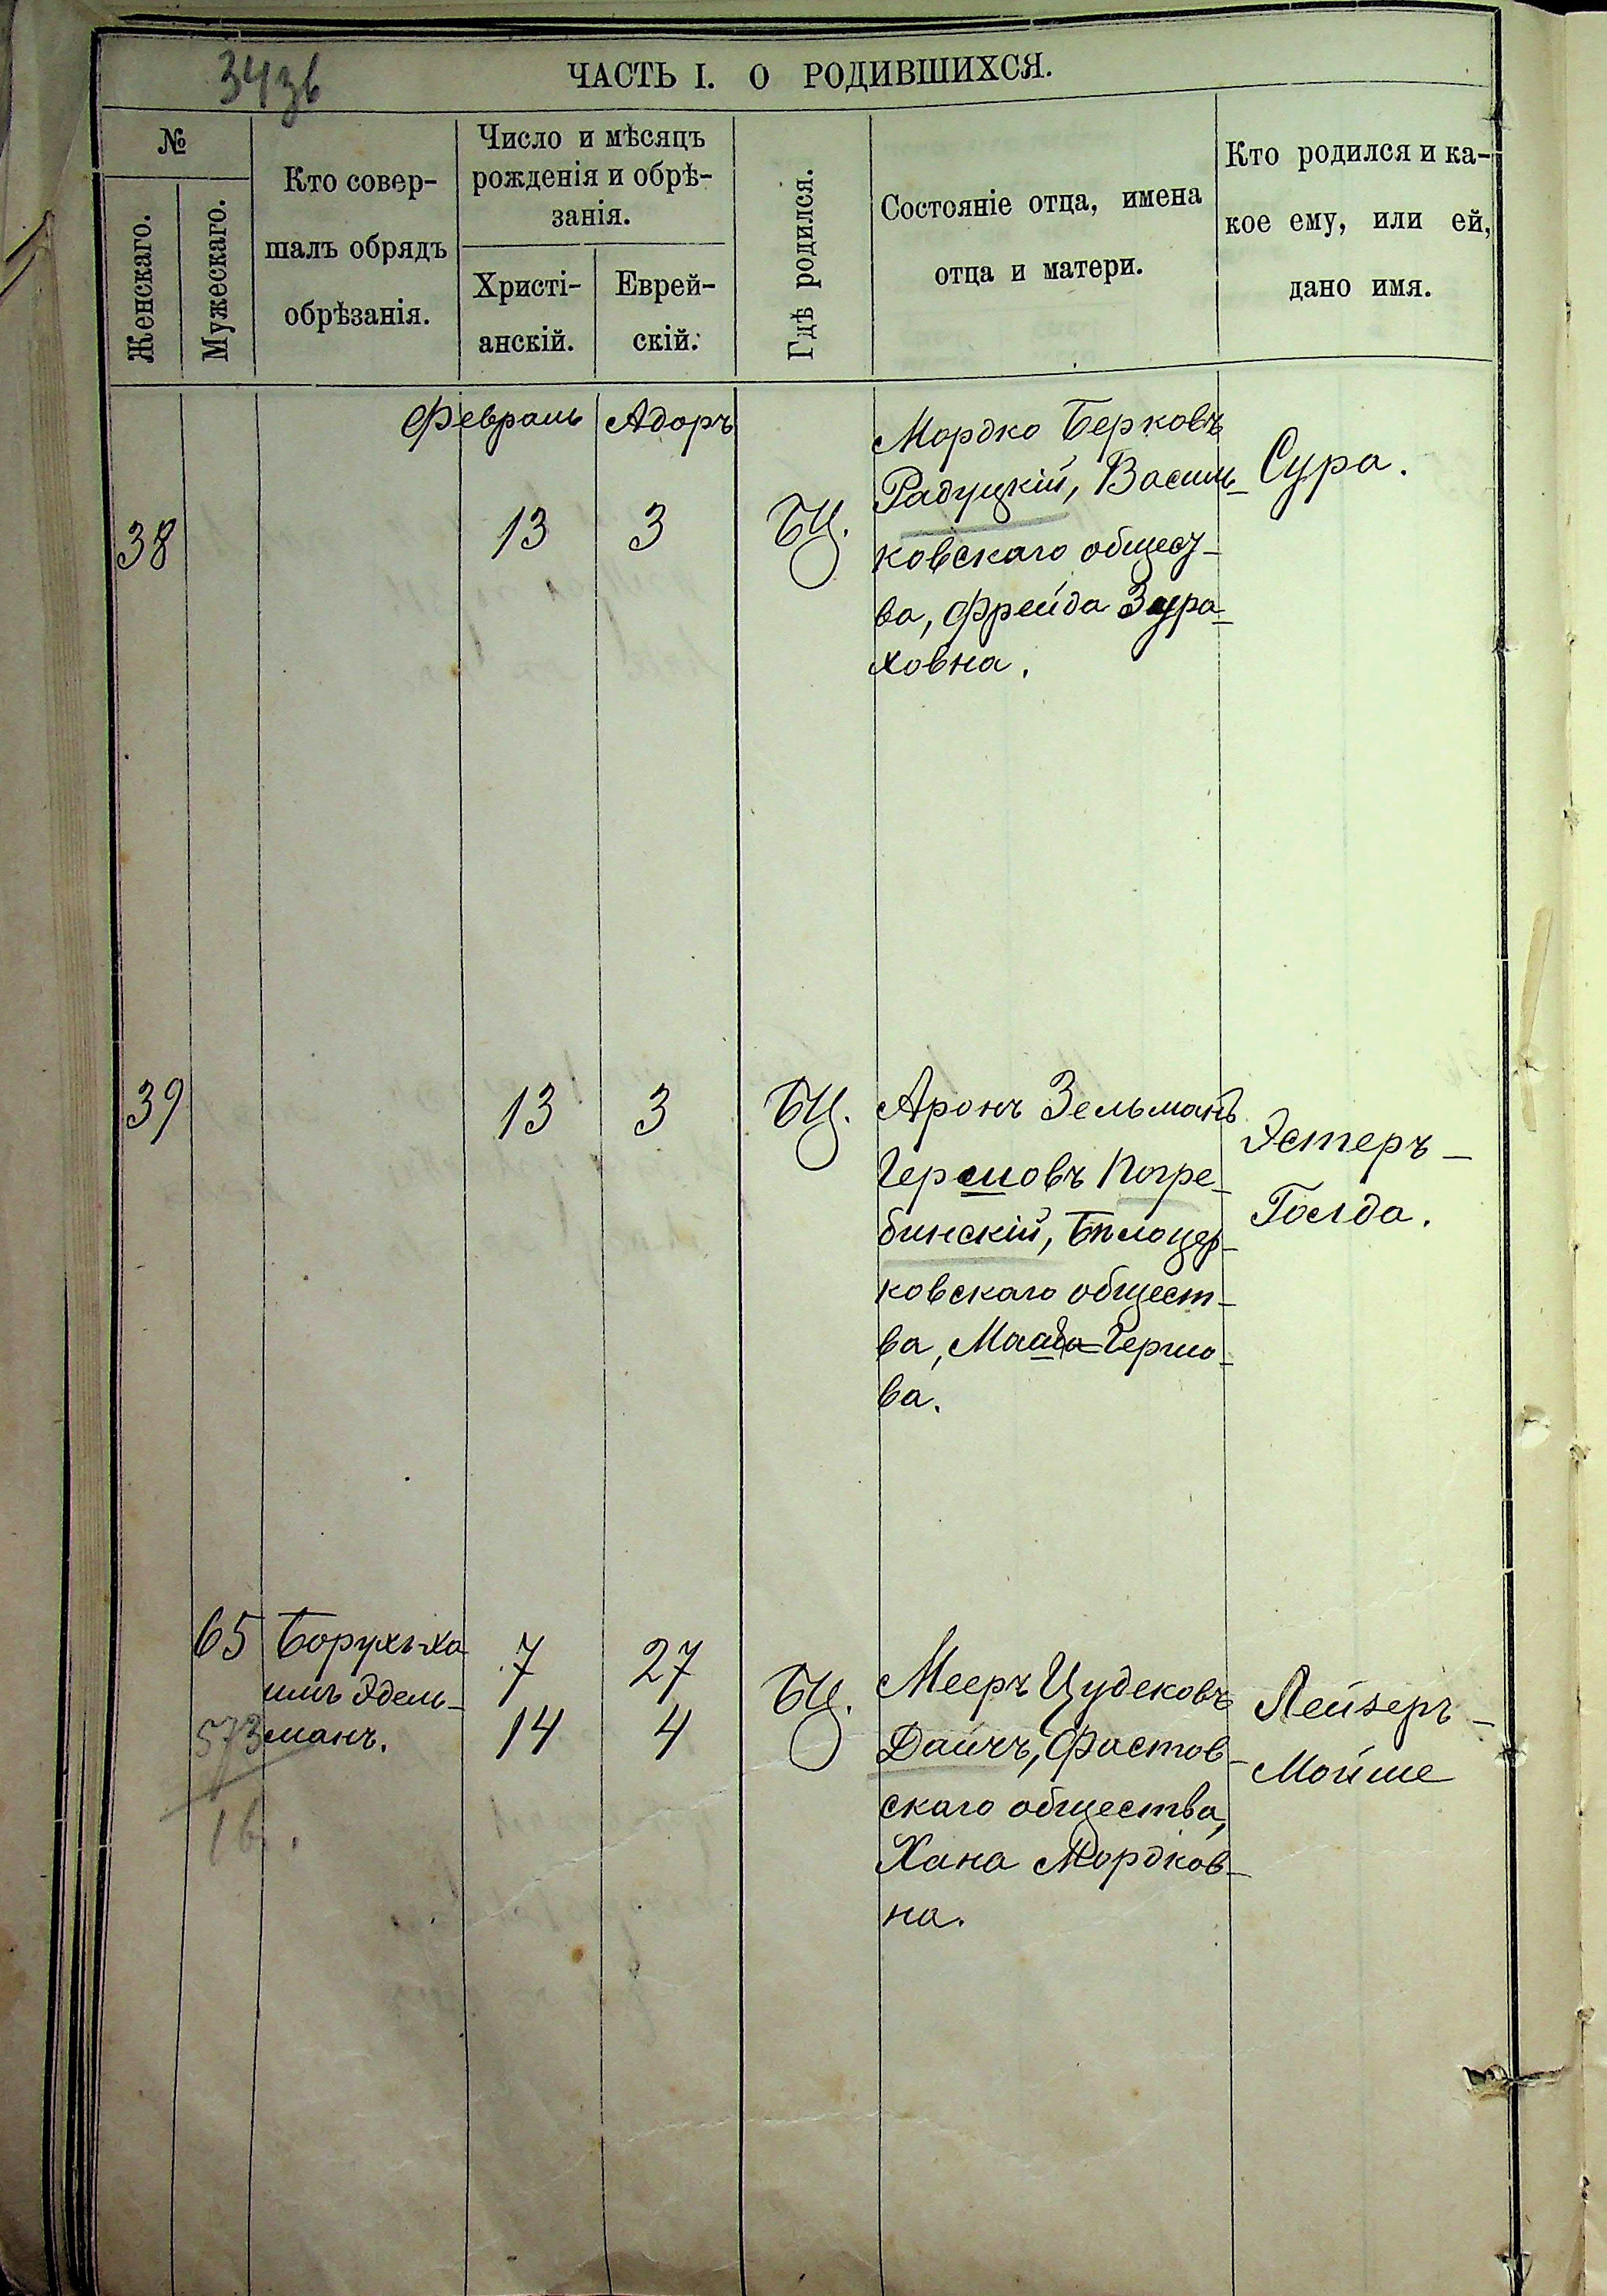 34зв
ЧАСТЬ I. О РОДИВШИХСЯ.
№
Женскаго.
Мужескаго.
Кто совер-
шалъ обрядъ
обрѣзанія.
Число и мѣсяцъ
рожденія и обрѣ-
занія.
Христі-
анскій.
Еврей-
скій.
Гдѣ родился.
Состояніе отца, имена
отца и матери.
Кто родился и ка-
кое ему, или ей,
дано имя.
Февраль Адаръ
38
13
3
БЦ.
Мордко Берковъ
Радуцкій, Василь-
ковскаго общест-
ва, Фрейда Зура-
ховна.
Сура.
39
13
3
БЦ.
Аронъ Зельманъ
Гершовъ Погре-
бинскій, Бѣлоцер-
ковскаго общест-
ва, Гершо-
ва.
Эстеръ-
Голда.
65
Борухъ-Ха
имъ Эдель-
манъ.
573
16.
7 27
14 4
БЦ.
Мееръ Цудековъ
Дайчъ, Фастов-
скаго общества,
Хана Мордков-
на.
Лейзеръ-
Мойше